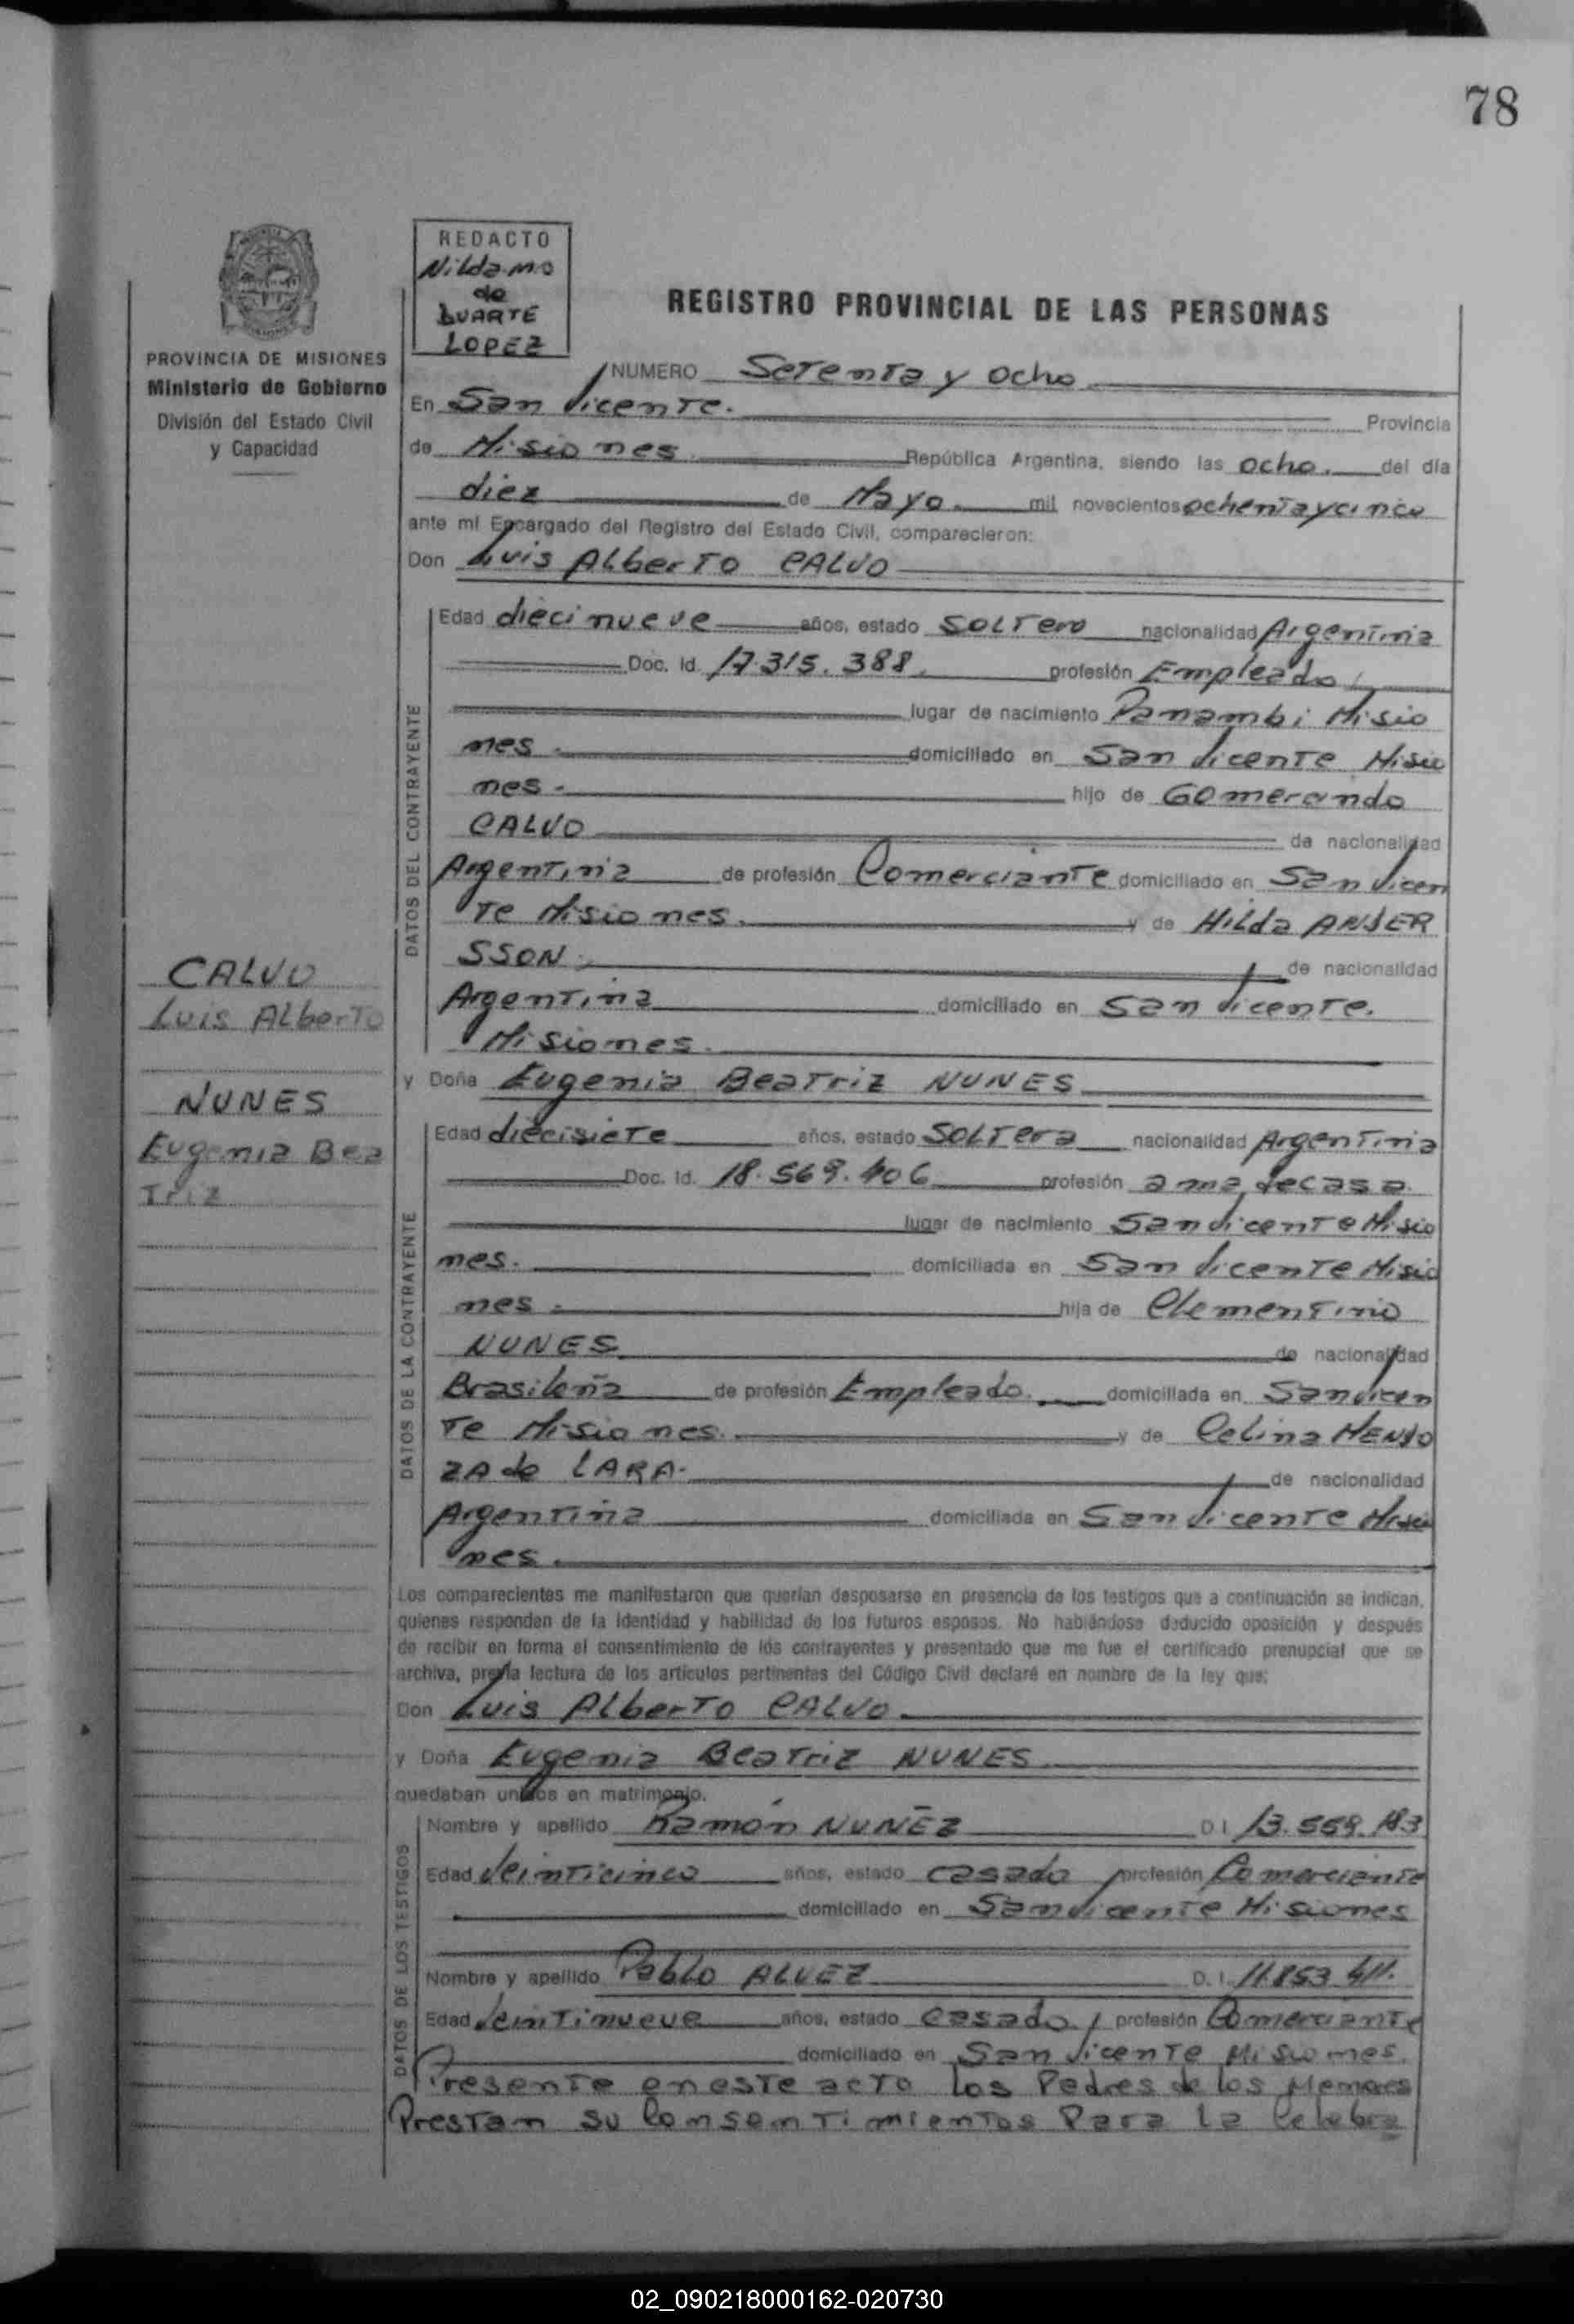 78
REDACTO
Nilda Mo
de
DUARTE
LOPEZ
REGISTRO PROVINCIAL DE LAS PERSONAS
PROVINCIA DE MISIONES
Ministerio de Gobierno
División del Estado Civil
y Capacidad
NUMERO Setenta y ocho
En San Vicente. Provincia
de Misiones República Argentina, siendo las ocho. del día
diez de Mayo mil novecientos ochenta y cinco
ante mí Encargado del Registro del Estado Civil, comparecieron:
Don Luis Alberto CALVO
DATOS DEL CONTRAYENTE
Edad diecinueve años, estado Soltero nacionalidad Argentina
Doc. Id. 17.315.388. profesión Empleado
lugar de nacimiento Panambi Misio
nes. domiciliado en San Vicente Misio
nes. hijo de Gomerando
CALVO de nacionalidad
Argentina de profesión Comerciante domiciliado en San Vicen
te Misiones. y de Hilda ANDER
SSON. de nacionalidad
Argentina domiciliado en San Vicente.
Misiones.
CALVO
Luis Alberto
NUNES
Eugenia Bea
triz
y Doña Eugenia Beatriz NUNES
DATOS DE LA CONTRAYENTE
Edad diecisiete años, estado Soltera nacionalidad Argentina
Doc. Id. 18.569.406 profesión ama de casa.
lugar de nacimiento San Vicente Misio
nes. domiciliada en San Vicente Misio
nes. hija de Clementino
NUNES de nacionalidad
Brasileña de profesión Empleado. domiciliada en San Vicen
te Misiones. y de Celina MENDO
ZA de LARA. de nacionalidad
Argentina domiciliada en San Vicente Misio
nes.
Los comparecientes me manifestaron que querían desposarse en presencia de los testigos que a continuación se indican,
quienes responden de la identidad y habilidad de los futuros esposos. No habiéndose deducido oposición y después
de recibir en forma el consentimiento de los contrayentes y presentado que me fue el certificado prenupcial que se
archiva, previa lectura de los artículos pertinentes del Código Civil declaré en nombre de la ley que:
Don Luis Alberto CALVO.
y Doña Eugenia Beatriz NUNES
quedaban unidos en matrimonio.
DATOS DE LOS TESTIGOS
Nombre y apellido Ramón NUÑEZ D.I. 13.559.183
Edad Veinticinco años, estado casado profesión Comerciante
domiciliado en San Vicente Misiones
Nombre y apellido Pablo ALVEZ D.I. 11.853.411.
Edad Veintinueve años, estado casado profesión Comerciante
domiciliado en San Vicente Misiones.
Presente en este acto los Padres de los Menores
Prestan su Consentimientos Para la Celebra
02_090218000162-020730